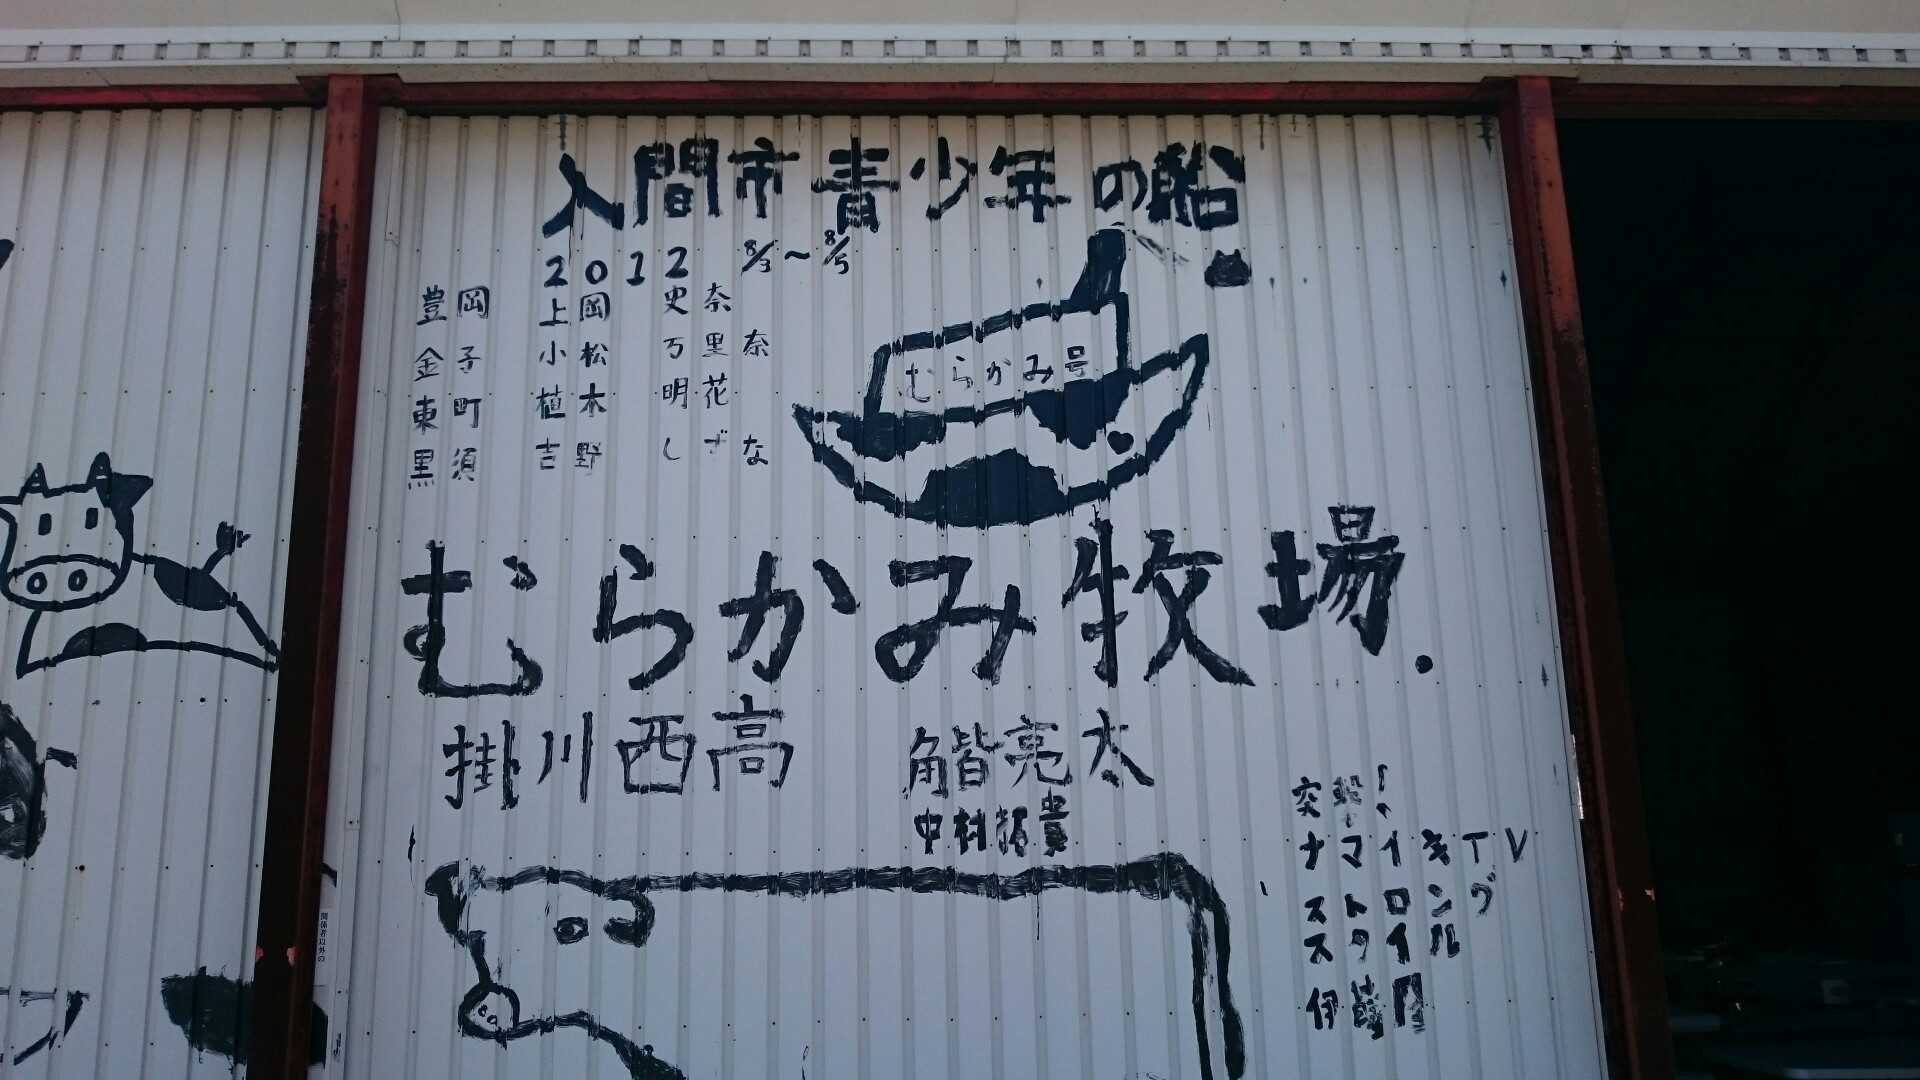 入間市青少年の船
2012 8/3~8/5
豊岡 上岡 史奈
金子 小松 万里奈
東町 植木 明花
黒須 吉野 しずな
むらかみ号
むらかみ牧場.
掛川西高
亮太
中村拓貴
突撃!
ナマイキTV
ストロング
スタイル
伊藤
関係者以外の